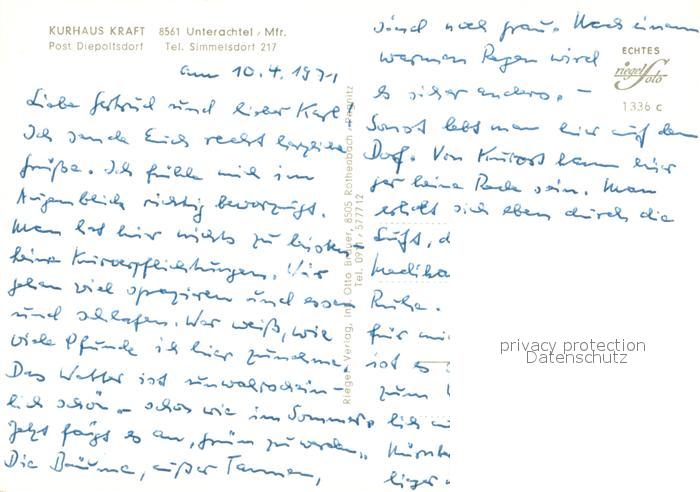 KURHAUS KRAFT 8561 Unterachtel / Mfr.
Post Diepoltsdorf Tel. Simmelsdorf 217
am 10.4.1971
Liebe Gertrud und lieber Karl!
Ich sende Euch recht herzliche
Grüße. Ich fühle mich im
Augenblick richtig bevorzugt.
Man hat hier nichts zu leisten –
keine Kurverpflichtungen. Wir
gehen viel spazieren und essen
und schlafen. Wer weiß, wie
viele Pfunde ich hier zunehme.
Das Wetter ist unwahrschein-
lich schön – schon wie im Sommer.
Jetzt fängt es an, grün zu werden.
Die Bäume, außer Tannen,
Rieger-Verlag, Inh. Otto Bauer, 8505 Röthenbach / Pegnitz
Tel. 0911 / 577712
sind noch grau. Nach einem
warmen Regen wird
es sicher anders. –
Sonst lebt man hier auf dem
Dorf. Von Kurort kann hier
gar keine Rede sein. Man
erholt sich eben durch die
Luft, d
Ruhe.
für mi
ist es
zum
lich
Nürnb
ECHTES
riegel Foto
1336 c
privacy protection
Datenschutz